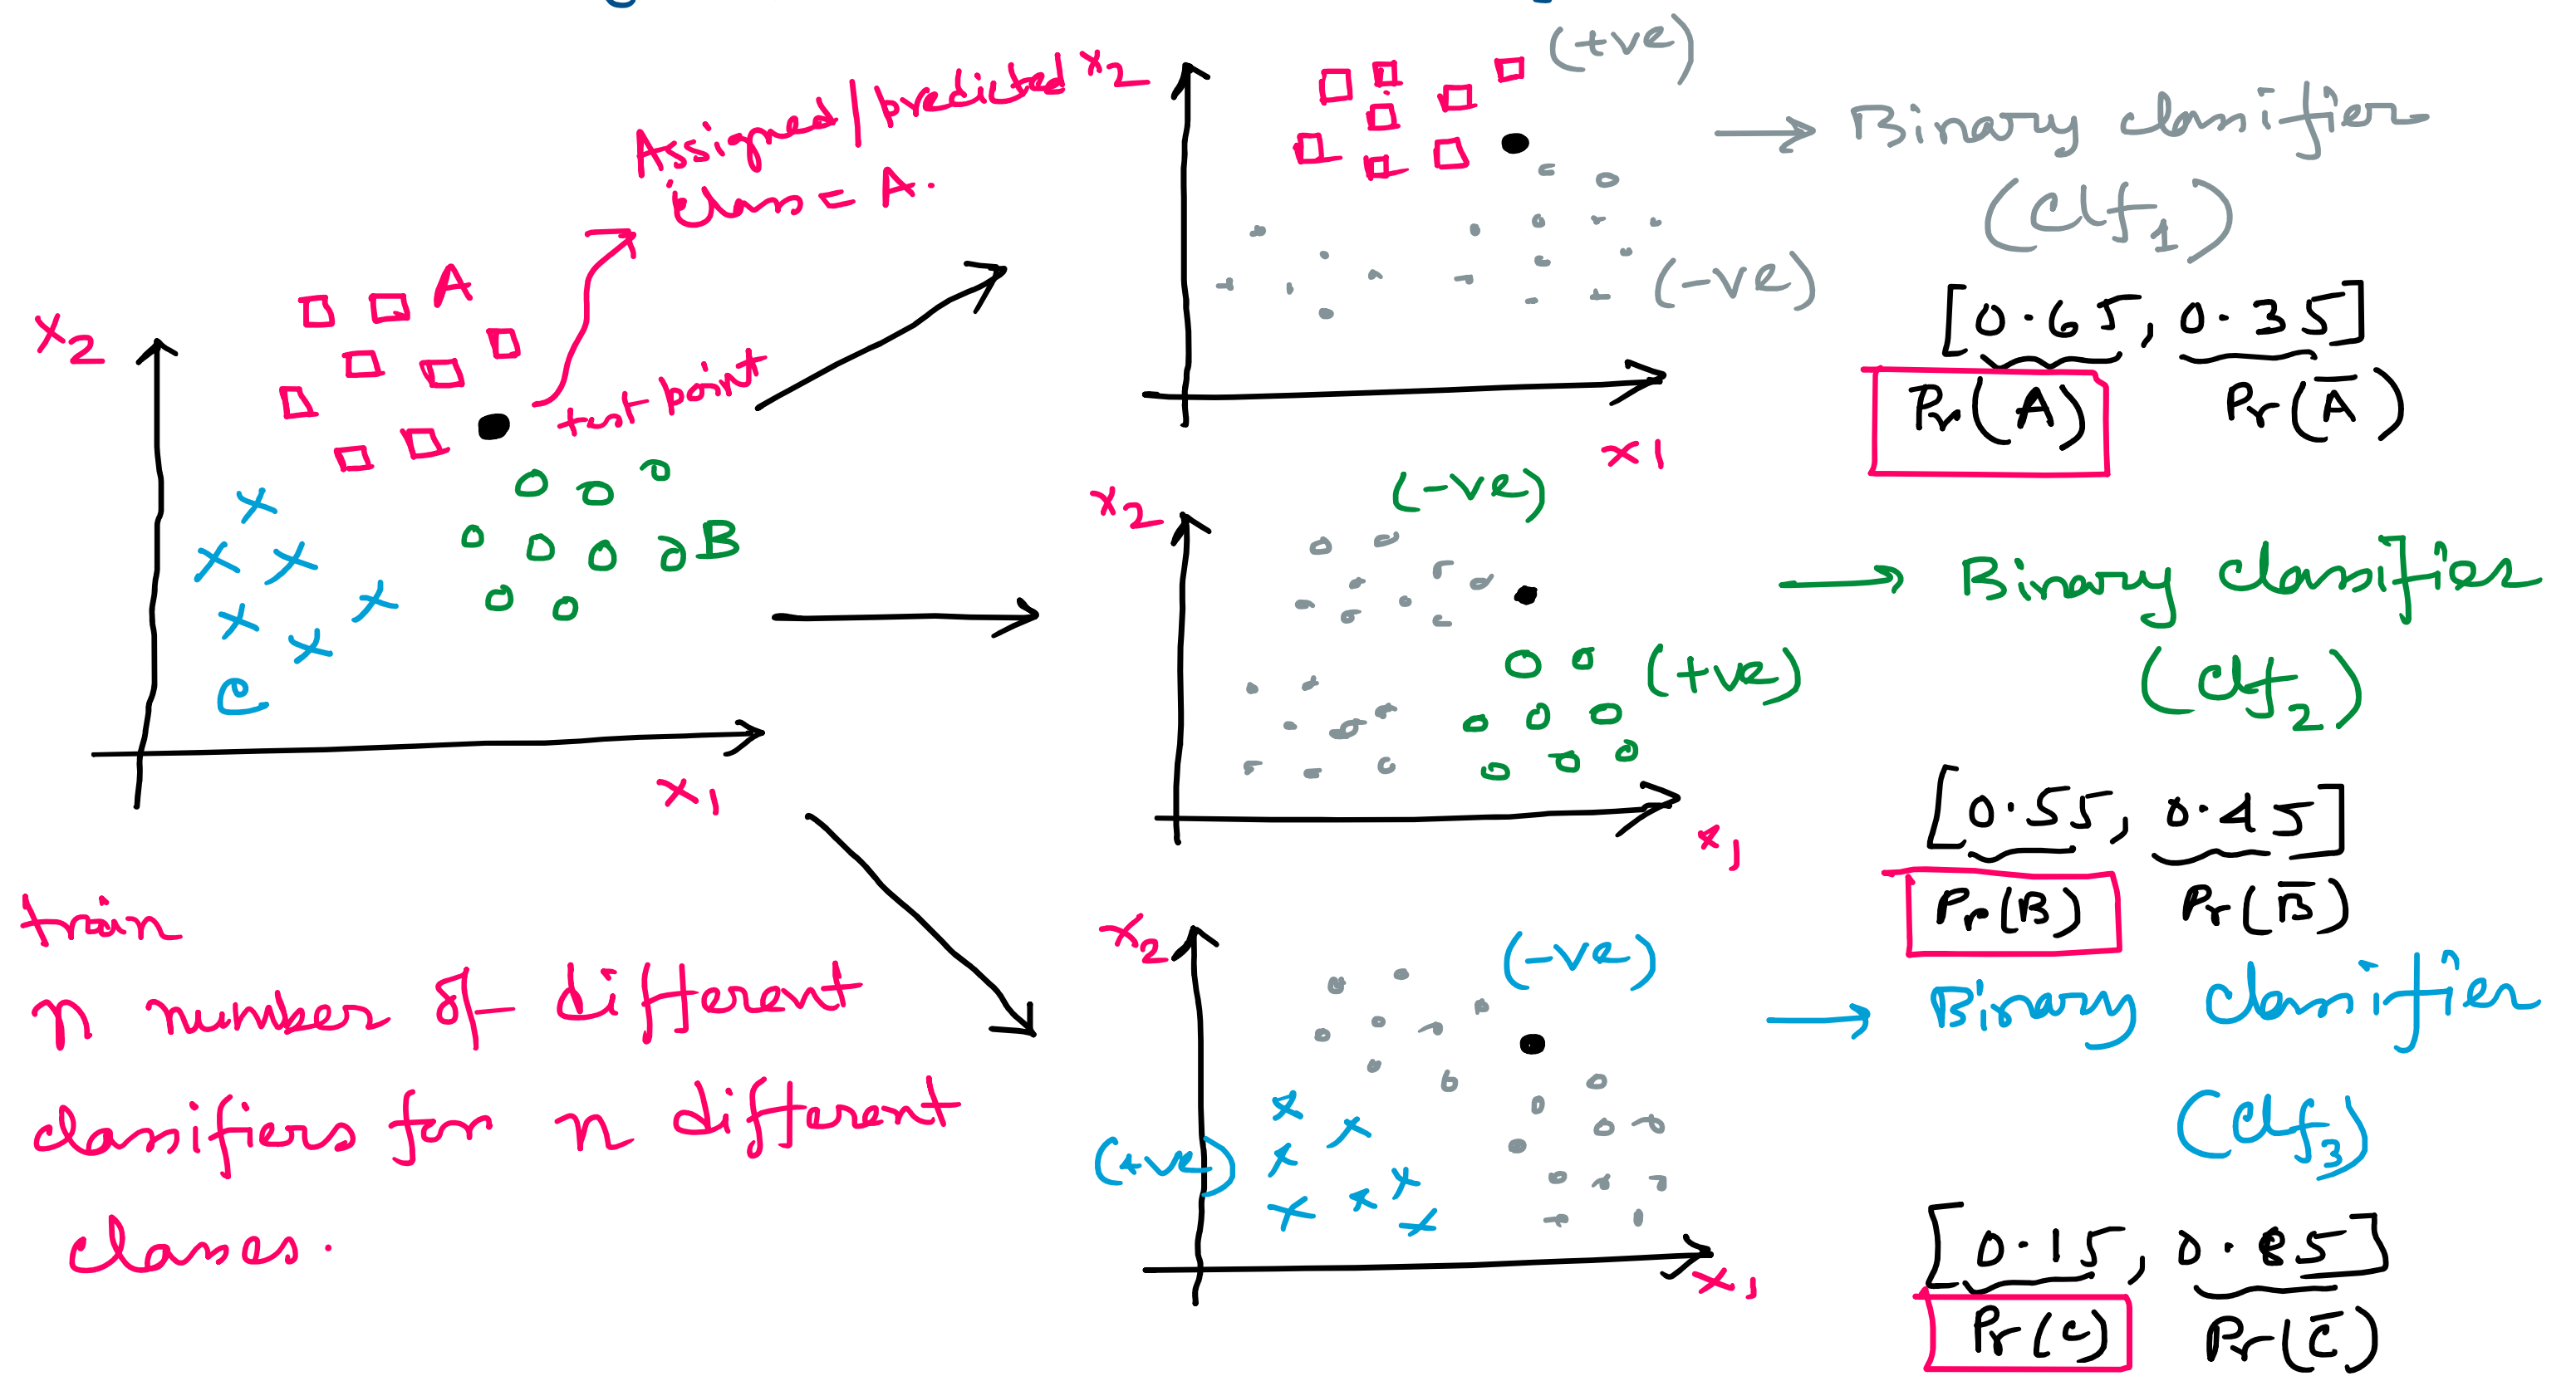 Assigned/predicted
class = A.
A
x2
test point
B
C
x1
train
n number of different
classifiers for n different
classes.
x2
(+ve)
(-ve)
x1
→ Binary classifier
(Clf1)
[0.65, 0.35]
Pr(A) Pr(A̅)
x2
(-ve)
(+ve)
x1
→ Binary classifier
(Clf2)
[0.55, 0.45]
Pr(B) Pr(B̅)
x2
(-ve)
(+ve)
x1
→ Binary classifier
(Clf3)
[0.15, 0.85]
Pr(C) Pr(C̅)